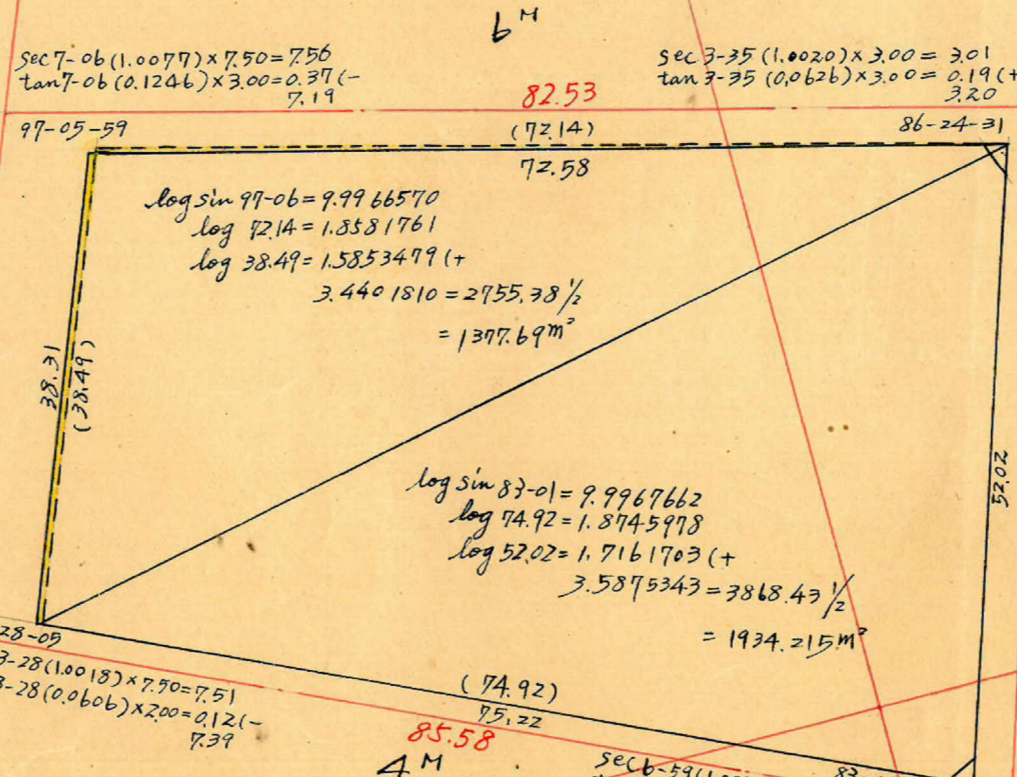 6M
sec 7-06 (1.0077) × 7.50 = 7.56
tan 7-06 (0.1246) × 3.00 = 0.37 (-
7.19
sec 3-35 (1.0020) × 3.00 = 3.01
tan 3-35 (0.0626) × 3.00 = 0.19 (+
3.20
82.53
97-05-59
(72.14)
86-24-31
72.58
log sin 97-06 = 9.9966570
log 72.14 = 1.8581761
log 38.49 = 1.5853479 (+
3.4401810 = 2755.38 1/2
= 1377.69m²
38.31
(38.49)
52.02
log sin 83-01 = 9.9967662
log 74.92 = 1.8745978
log 52.02 = 1.7161703 (+
3.5875343 = 3868.43 1/2
= 1934.215m²
28-05
3-28 (1.0018) × 7.50 = 7.51
3-28 (0.0606) × 2.00 = 0.12 (-
7.39
(74.92)
75.22
85.58
4M
sec 6-59 (1.00
83